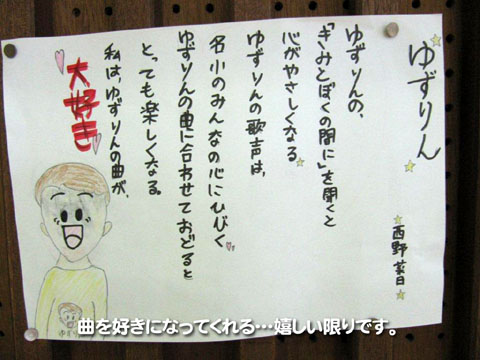 ゆずりん
西野菜日
ゆずりんの、
「きみとぼくの間に」を聞くと
心がやさしくなる。
ゆずりんの歌声は、
名小のみんなの心にひびく
ゆずりんの曲に合わせておどると
とっても楽しくなる。
私は、ゆずりんの曲が、
大好き
曲を好きになってくれる…嬉しい限りです。